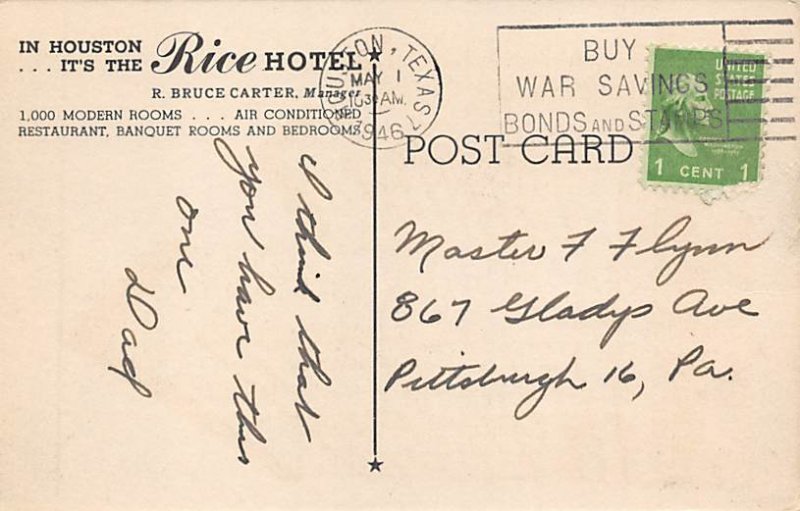 IN HOUSTON
. . . IT'S THE Rice HOTEL
R. BRUCE CARTER, Manager
1,000 MODERN ROOMS . . . AIR CONDITIONED
RESTAURANT, BANQUET ROOMS AND BEDROOMS
HOUSTON, TEXAS
MAY 1
1030 AM
1946
BUY
WAR SAVINGS
BONDS AND STAMPS
UNITED
STATES
POSTAGE
1 CENT 1
POST CARD
I think that
you have this
one
Dad
Master F Flynn
867 Gladys Ave
Pittsburgh 16, Pa.